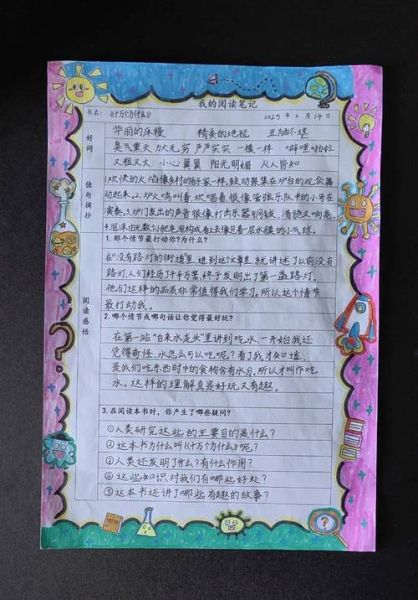 我的阅读笔记
书名:《十万个为什么》 2025年2月14日
好词
华丽的床幔 精美的地毯 丑陋不堪
臭气熏天 力大无穷 严严实实 一模一样 噼哩啪啦
又粗又大 小心翼翼 阳光明媚 从人皆知
佳句摘抄
1.欢快的火焰像乡村的新家一样,鼓动聚集在炉台的观众舞
动起来。2.炉火鸣叫着,欢唱着,很像管弦乐队中的小号在
演奏。3.炉门发出的声音很像打击乐器:铜钹,清脆又响亮。
1.那个情节最打动你?为什么?
阅读感悟
在"没有路灯的街道里,进到这次事里,就讲述了以前没有
路灯,人们经历了千辛万苦,终于发明出了第一盏路灯。
他们这样的品质非常值得我们学习,所以这个情节
最打动我。
2.哪个情节或哪句话让你觉得最好玩?
在第一站"自来水龙头"里讲到吃水,一开始我还
觉得奇怪,水怎么可以吃呢?看了我才知道,
是我们吃东西时中的食物含有水分,所以才叫作吃
水。这样的理解真是好玩又有趣。
3.在阅读本书时,你产生了哪些疑问?
①人类研究这些的主要目的是什么?
②这本书为什么叫《十万个为什么》呢?
③人类还发明了什么?有什么作用?
④这些知识对我们有哪些好处?
⑤这本书还讲了哪些有趣的故事?